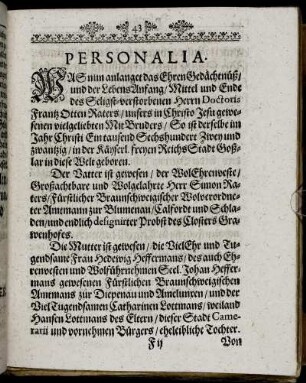 43
PERSONALIA.
WAS nun anlanget das Ehren Gedächtnüß/
und der Lebens Anfang/ Mittel und Ende
des Seligst-verstorbenen Herrn Doctoris
Frantz Otten Raters/ unsers in Christo Jesu gewe-
senen vielgeliebten Mit Bruders/ So ist derselbe im
Jahr Christi Ein tausend Sechshundert Zwey und
zwantzig/ in der Käyserl. freyen Reichs Stadt Goß-
lar in diese Welt geboren.
Der Vatter ist gewesen/ der Wol Ehrenveste/
Großachtbare und Wolgelahrte Herr Simon Ra-
ters/ Fürstlicher Braunschweigischer Wolverordne-
ter Amtmann zur Blumenau/ Calförde und Schla-
den/ und endlich designirter Probst des Closters Gra-
venhofes.
Die Mutter ist gewesen/ die Viel Ehr und Tu-
gendsame Frau Hedewig Heffermans/ des auch Eh-
renvesten und Wolfürnehmen Seel. Johan Heffer-
mans gewesenen Fürstlichen Braunschweigischen
Amtmans zur Diepenau und Amelunxen/ und der
Viel Tugendsamen Catharinen Lottmans/ weiland
Hansen Lottmans des Eltern/ dieser Stadt Came-
rarii und vornehmen Bürgers/ eheleibliche Tochter.
F ij Von